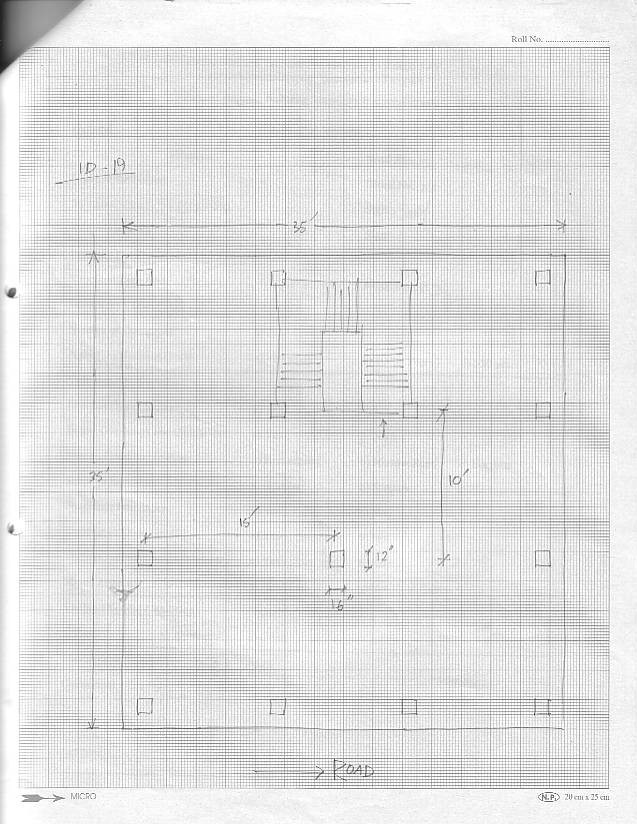 Roll No. ............................
ID-19
35'
35'
10'
15'
12"
16"
ROAD
MICRO
N.P. 20 cm x 25 cm